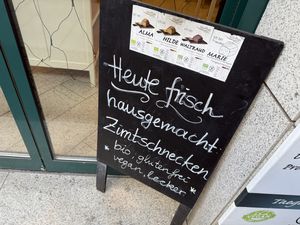 ALMA
HILDE
WALTRAUD
MARIE
Heute frisch
hausgemacht
Zimtschnecken
* bio, glutenfrei *
vegan, lecker